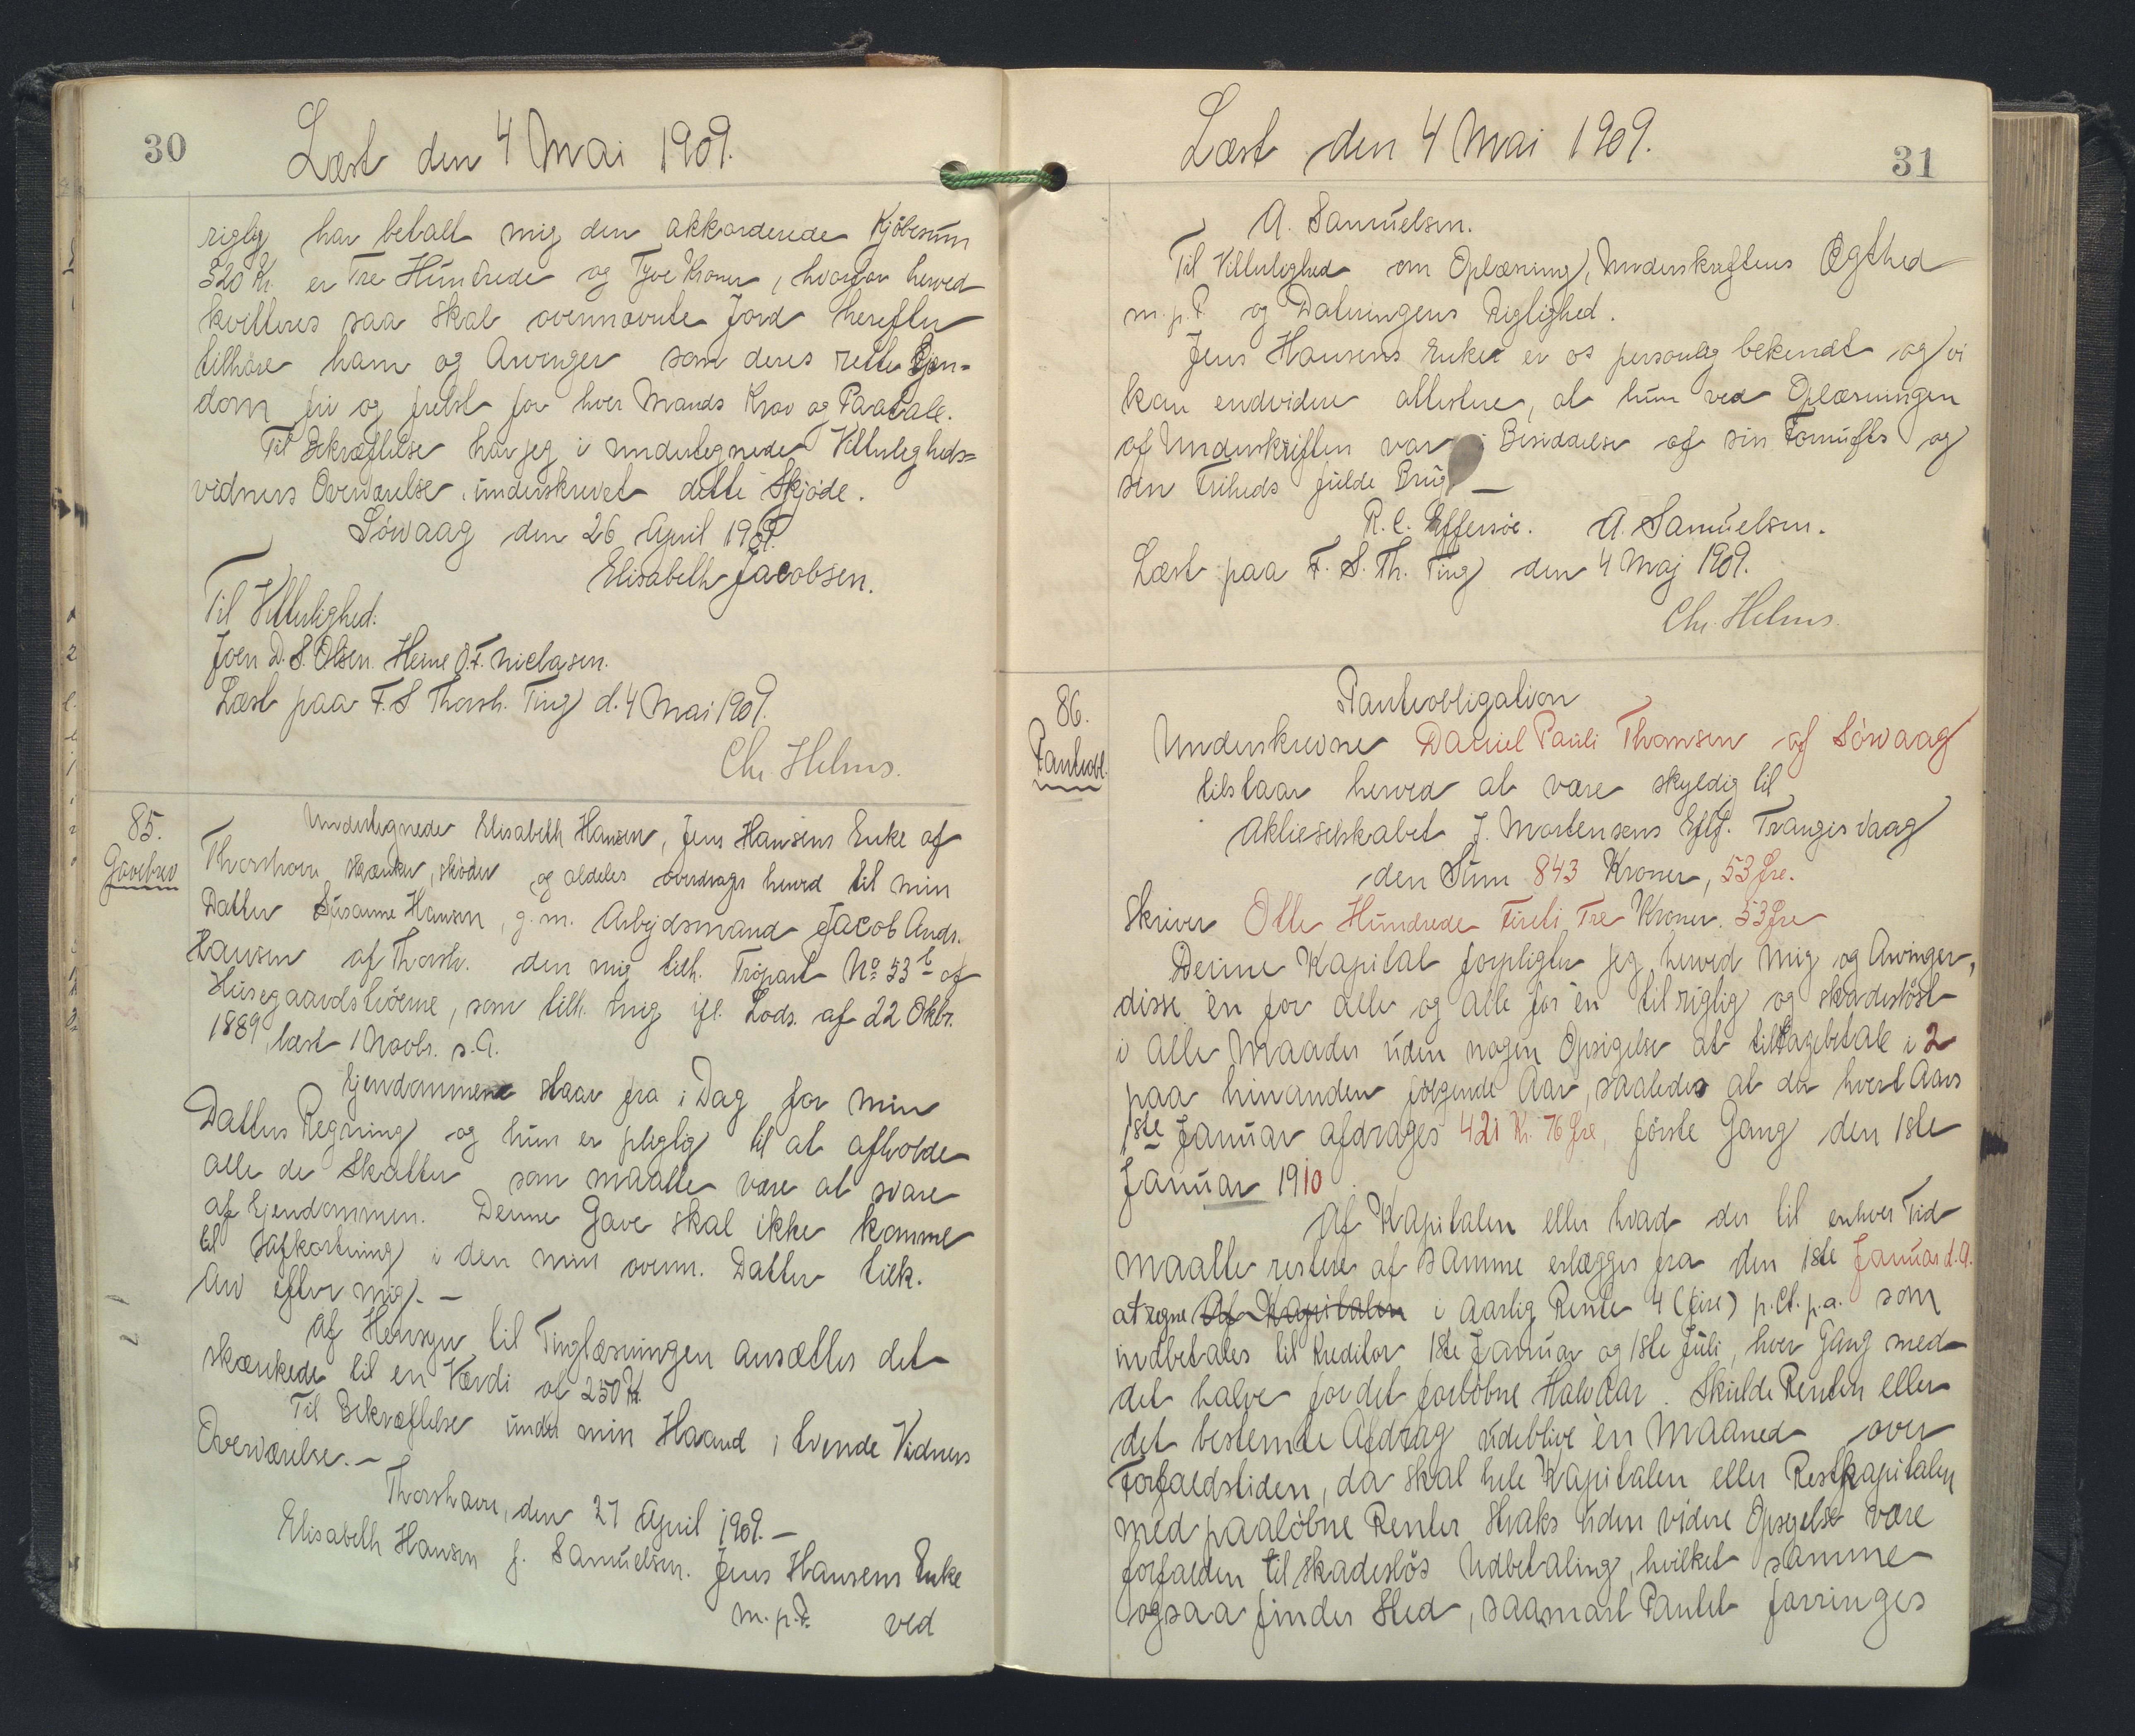 30
Læst den 4 Mai 1909.
rigtig har betalt mig den akkorderede Kjøbesum
320 Kr. er Tre Hundrede og Tyve Kroner, hvorfor herved
kvitteres saa skal ovennævnte Jord herefter
tilhøre ham og Arvinger som deres rette Ejen-
dom fri og frelst for hver Mands Krav og Paatale.
Til Bekræftelse har jeg i undertegnede Vitterligheds-
vidners Overværelse underskrevet dette Skjøde.
Sørvaag den 26 April 1909.
Elisabeth Jacobsen.
Til Vitterlighed.
Joen D. S. Olsen. Heine O. F. Niclasen.
Læst paa F. S Thorsh. Ting d. 4 Mai 1909.
Chr Helms.
85.
Gavebrev
Undertegnede Elisabeth Hansen, Jens Hansens Enke af
Thorshavn skænker, skøder og aldeles overdrager herved til min
Datter Susanne Hansen, g. m. Arbejdsmand Jacob Andr.
Hansen af Thorsh. den mig tilh. Trøpart No 53 b af
Husegaardstrøerne, som tilh. mig ifl. Lods. af 22 Oktbr.
1889, læst 1 Novbr. s. A.
Ejendommene staar fra i Dag for min
Datters Regning og hun er pligtig til at afholde
alle de Skatter som maatte være at svare
af Ejendommen. Denne Gave skal ikke komme
til Safkortning i den min ovenn. Datter tilk.
Arv efter mig. —
Af Hensyn til Tinglæsningen ansættes det
skænkede til en Værdi af 250 Kr.
Til Bekræftelse under min Haand i tvende Vidners
Overværelse. —
Thorshavn, den 27 April 1909. —
Elisabeth Hansen f. Samuelsen. Jens Hansens Enke
m. p. P. ved
31
Læst den 4 Mai 1909.
A. Samuelsen.
Til Vitterlighed om Oplæsning, Underskriftens Ægthed
m. p. P og Dateringens Rigtighed.
Jens Hansens Enke er os personlig bekendt og vi
kan endvidere attestere, at hun ved Oplæsningen
af Underskriften var i Besiddelse af sin Fornufts og
sin Friheds fulde Brug —
R. C. Effersøe. A. Samuelsen.
Læst paa F. S. Th. Ting den 4 Maj 1909.
Chr. Helms.
86.
Panteobl.
Panteobligation
Underskrevne Daniel Pauli Thomsen af Sørvaag
tilstaar herved at være skyldig til
Aktieselskabet J. Mortensens Eftf. Trangisvaag
den Sum 843 Kroner, 53 Øre.
Skriver Otte Hundrede Firti Tre Kroner. 53 Øre
Denne Kapital forpligter jeg herved mig og Arvinger,
disse èn for alle og alle for èn til rigtig og skadesløst
i alle Maader uden nogen Opsigelse at tilbagebetale i 2
paa hinanden følgende Aar, saaledes at der hvert Aars
1ste Januar afdrages 421 Kr. 76 Øre, første Gang den 1ste
Januar 1910
Af Kapitalen eller hvad der til enhver Tid
maatte restere af samme erlægges fra den 1ste Januar d. A.
at regne Af Kapitalen i aarlig Rente 4 (fire) p. Ct. p. a. som
indbetales til Kreditor 1ste Januar og 1ste Juli, hver Gang med
det halve for det forløbne Halvaar. Skulde Renten eller
det bestemte Afdrag udeblive èn Maaned over
Forfaldstiden, da skal hele Kapitalen eller Restkapitalen
med paaløbne Renter straks uden videre Opsigelse være
forfalden til skadesløs Udbetaling, hvilket samme
ogsaa finder Sted, saasnart Pantet forringes